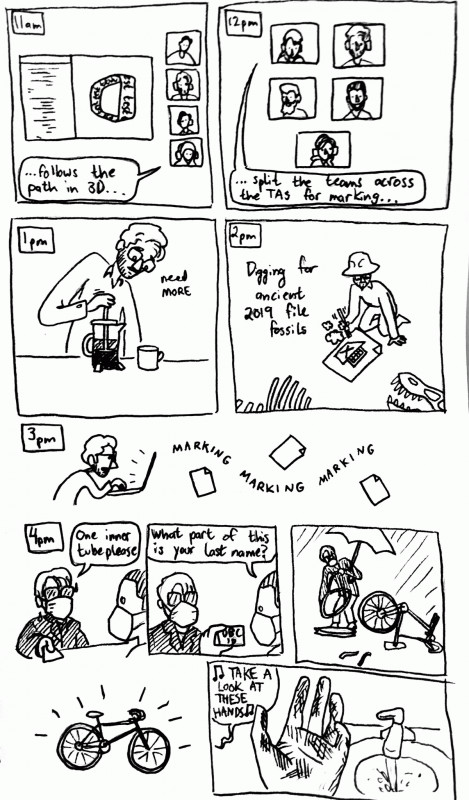 11am
Test Text Test Text
...follows the
path in 3D...
12pm
... split the teams across
the TAs for marking...
1pm
need
MORE
2pm
Digging for
ancient
2019 file
fossils
X
3pm
MARKING
MARKING
MARKING
4pm
One inner
tube please
What part of this
is your last name?
♫ TAKE A
LOOK AT
THESE
HANDS♫